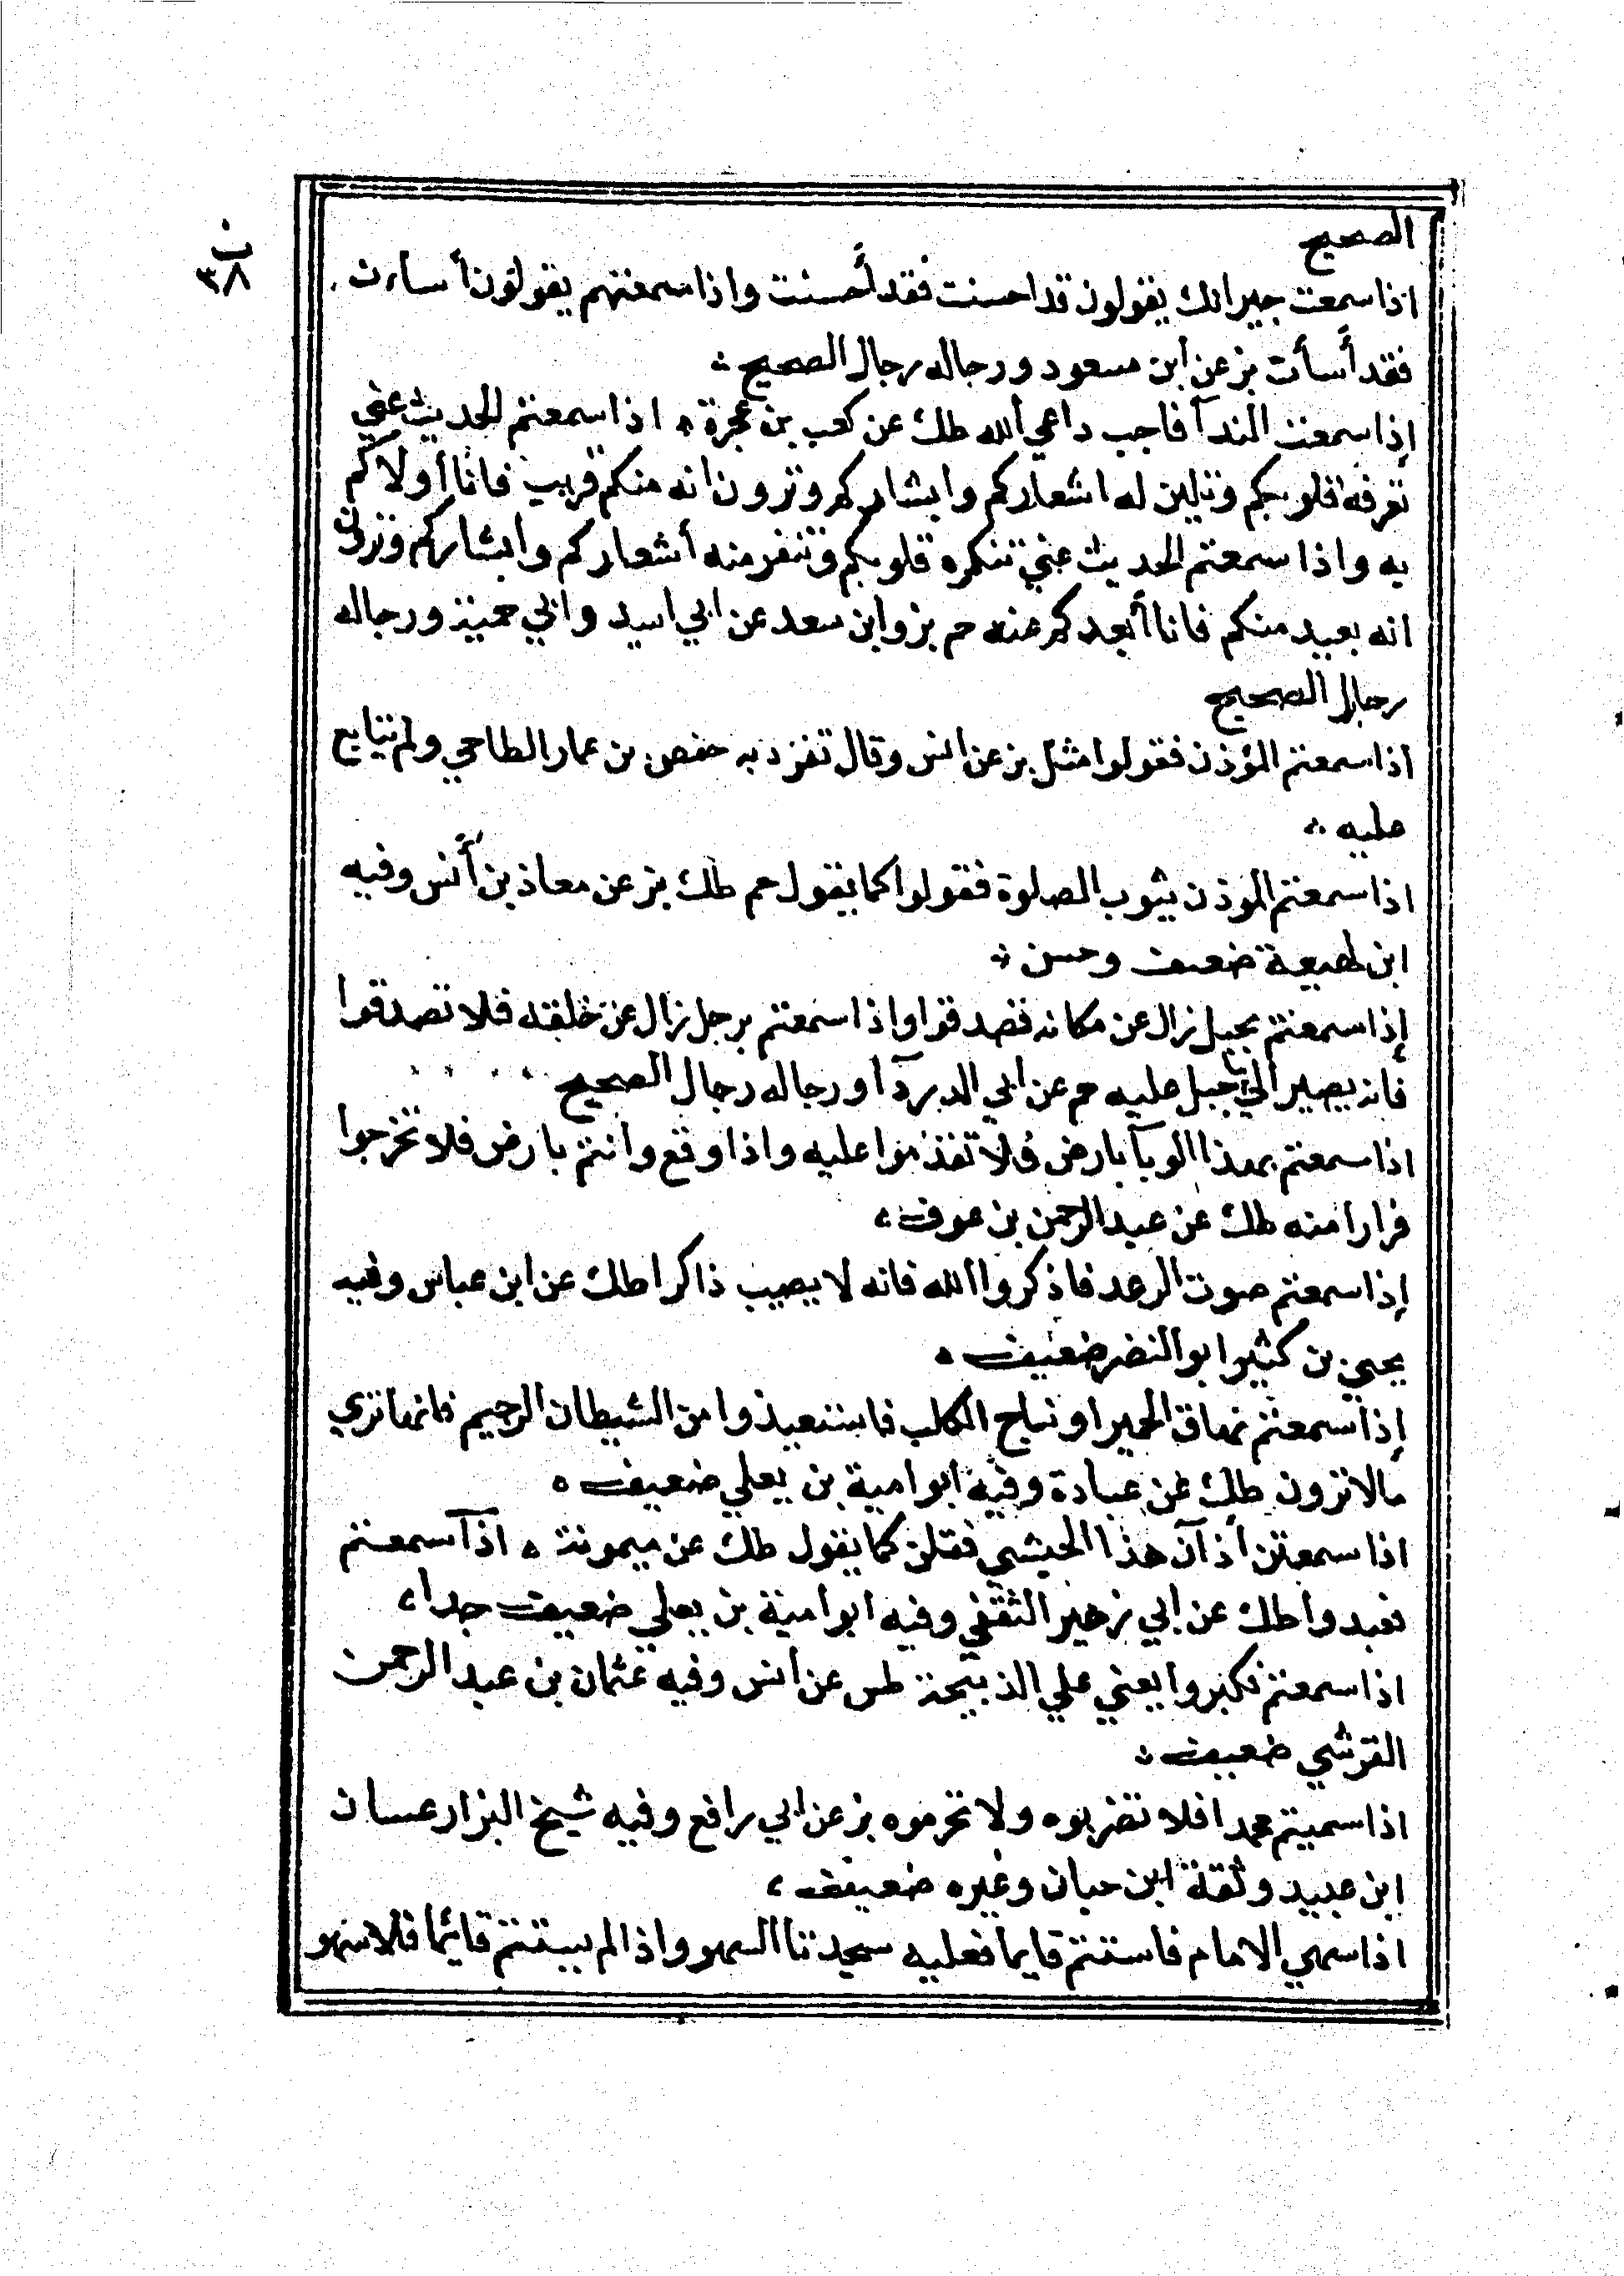 ب
٣٨
الصحيح
اذا سمعت جيرانك يقولون قد احسنت فقد أحسنت واذا سمعتهم يقولون أساءت
فقد أسأت بز عن ابن مسعود ورجاله رجال الصحيح
إذا سمعت الندآ فاجب داعي الله طك عن كعب بن عجرة ه اذا سمعتم الحديث عني
تعرفه قلوبكم وتلين له اشعاركم وابشاركم وترون انه منكم قريب فانا أولاكم
به واذا سمعتم الحديث عني تنكره قلوبكم وتنفر منه أشعاركم وابشاركم وترون
انه بعيد منكم فانا أبعدكم عنه حم بز وابن سعد عن ابي اسيد وابي حميد ورجاله
رجال الصحيح
اذا سمعتم المؤذن فقولوا مثل بز عن انس وقال تفرد به حفص بن عمار الطاحي ولم يتابع
عليه
اذا سمعتم الموذن يثوب بالصلوة فقولوا كما يقول حم طك بز عن معاذ بن أنس وفيه
ابن لهيعة ضعيف وحسن
إذا سمعتم بجبل زال عن مكانه فصدقوا واذا سمعتم برجل زال عن خلقه فلا تصدقوا
فانه يصير الي ما جبل عليه حم عن ابي الدردآ ورجاله رجال الصحيح
اذا سمعتم بهذا الوبآ بارض فلا تقدموا عليه واذا وقع وأنتم بارض فلا تخرجوا
فرارا منه طك عن عبد الرحمن بن عوف
إذا سمعتم صوت الرعد فاذكروا الله فانه لا يصيب ذاكرا طك عن ابن عباس وفيه
يحيي بن كثير ابو النضر ضعيف ه
إذا سمعتم نهاق الحمير او نباح الكلب فاستعيذوا من الشيطان الرجيم فانها تري
مالا ترون طك عن عبادة وفيه ابو امية بن يعلي ضعيف ه
اذا سمعتن أذآن هذا الحبشي فقلن كما يقول طك عن ميمونة ه اذا سمعتم
فعبدوا طك عن ابي زهير الثقفي وفيه ابو امية بن يعلي ضعيف جدا
اذا سمعتم فكبروا يعني علي الذبيحة طس عن انس وفيه عثمان بن عبد الرحمن
القرشي ضعيف
اذا سميتم محمدا فلا تضربوه ولا تحرموه بز عن ابي رافع وفيه شيخ البزار غسان
ابن عبيد وثقة ابن حبان وغيره ضعيف
اذا سهي الامام فاستتم قايما فعليه سجدتا السهو واذا لم يستتم قائما فلا سهو